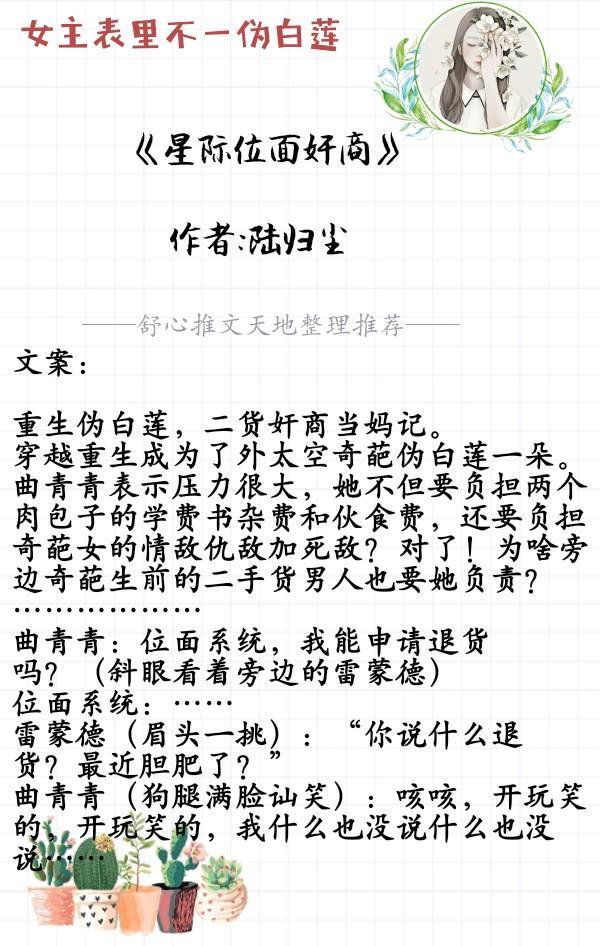 女主表里不一伪白莲
《星际位面奸商》
作者:陆归尘
——舒心推文天地整理推荐——
文案：
重生伪白莲，二货奸商当妈记。
穿越重生成为了外太空奇葩伪白莲一朵。
曲青青表示压力很大，她不但要负担两个
肉包子的学费书杂费和伙食费，还要负担
奇葩女的情敌仇敌加死敌？对了！为啥旁
边奇葩生前的二手货男人也要她负责？
………………
曲青青：位面系统，我能申请退货
吗？（斜眼看着旁边的雷蒙德）
位面系统：……
雷蒙德（眉头一挑）：“你说什么退
货？最近胆肥了？”
曲青青（狗腿满脸讪笑）：咳咳，开玩笑
的，开玩笑的，我什么也没说什么也没
说……